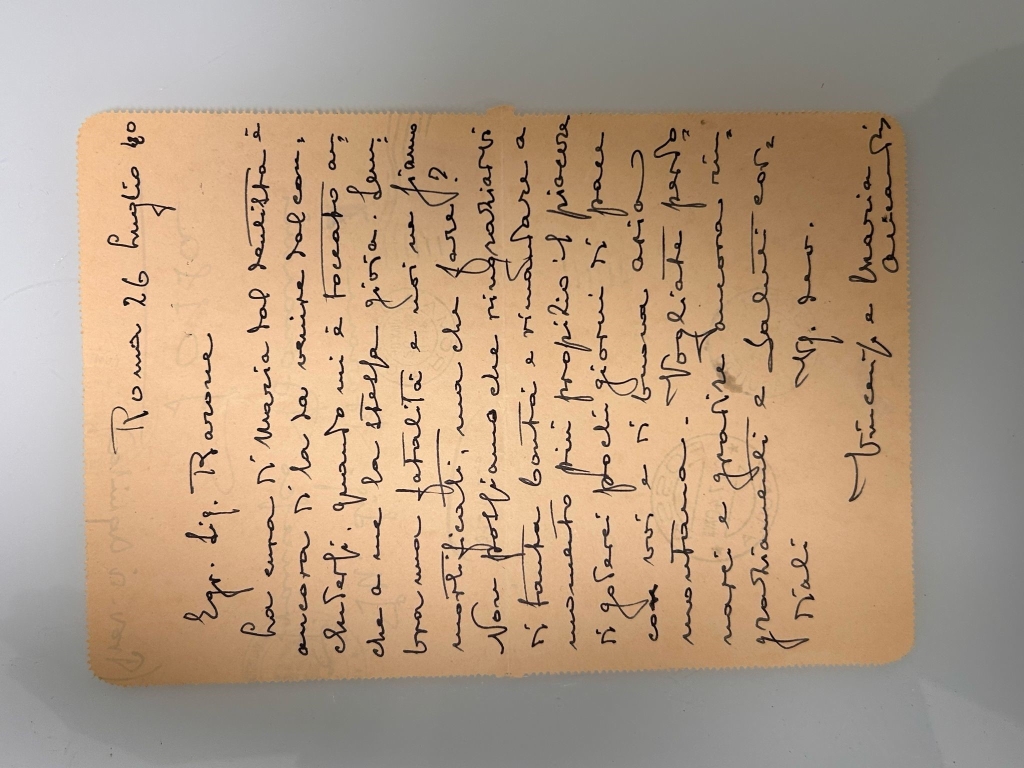 Roma 26 Luglio 40
Egr. Sig. Barone
La cura di Maria dal dentista è
ancora di là da venire dal con,
chiudersi. Quando mi è toccato an,
che a me la stessa gioia. Sem,
bra una fatalità e noi ne siamo
mortificati, ma che fare?
Non possiamo che ringraziarvi
di tanta bontà e rimandare a
momento più propizio il piacere
di godere pochi giorni di pace
con voi e di buona aria
montana. Vogliate perdo,
narci e gradire ancora rin,
graziamenti e saluti cor,
diali
Vs. dev.
Vincenzo e Maria